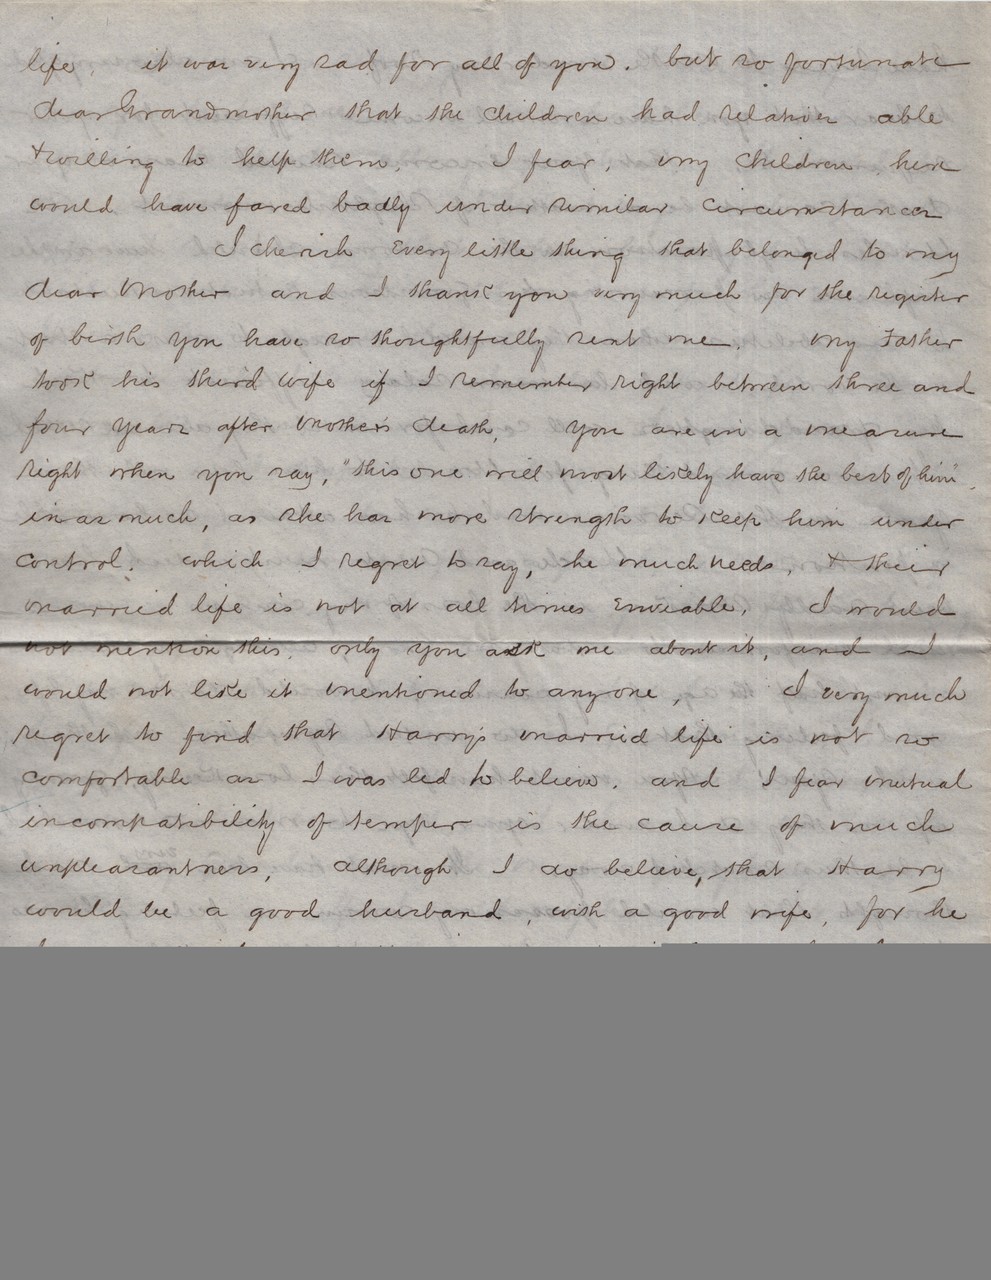 life, it was very sad for all of you. but so fortunate
dear Grandmother that the children had relatives able
+ willing to help them. I fear, my children here
would have fared badly under similar circumstances
I cherish every little thing that belonged to my
dear Mother and I thank you very much for the register
of birth you have so thoughtfully sent me. My Father
took his third wife if I remember right between three and
four years after Mother's death, you are in a measure
right when you say, "this one will most likely have the best of him",
in as much, as she has more strength to keep him under
control. which I regret to say, he much needs, + their
married life is not at all times enviable. I would
not mention this, only you ask me about it, and I
would not like it mentioned to anyone, I very much
regret to find that Harry's married life is not so
comfortable as I was led to believe. and I fear mutual
incompatibility of temper is the cause of much
unpleasantness, although I do believe, that Harry
would be a good husband, with a good wife, for he